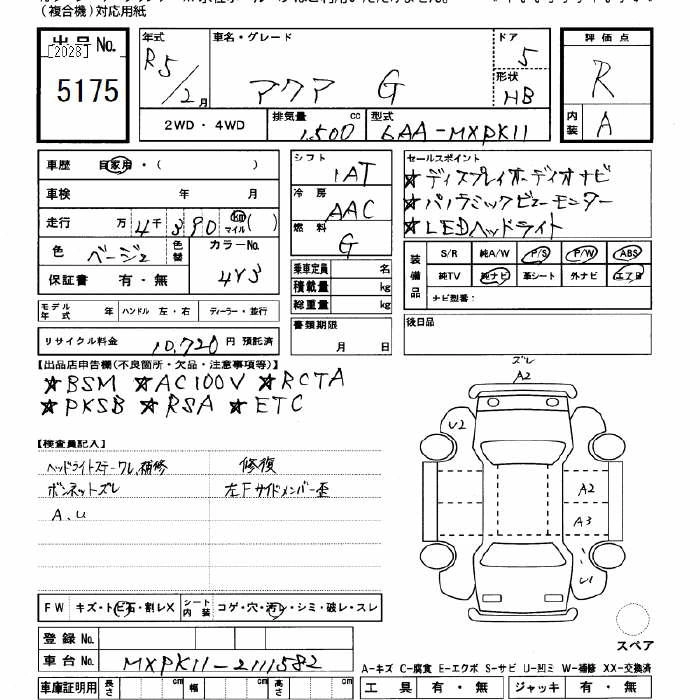 (複合機)対応用紙
出品No. 年式 車名・グレード ドア 評価点
[2028] R5 5 R
5175 /2月 アクア G 形状 HB
2WD・4WD 排気量 cc 型式 内装 A
1,500 6AA-MXPK11
車歴 自家用・( ) シフト 1AT セールスポイント
車検 年 月 冷房 AAC ★ディスプレイオーディオナビ
走行 万 4千390 km マイル ( ) 燃料 G ★パノラミックビューモニター
★LEDヘッドライト
色 ベージュ 色替 カラーNo. 4V3 乗車定員 名 装備品 S/R 純A/W P/S P/W ABS
保証書 有・無 積載量 kg 純TV 純ナビ 革シート 外ナビ エアB
総重量 kg ナビ型番:
モデル年式 年 ハンドル 左・右 ディーラー・並行 書類期限 月 日 後日品
リサイクル料金 10,720円 預託済
【出品店申告欄(不良箇所・欠品・注意事項等)】
★BSM ★AC100V ★RCTA
★PKSB ★RSA ★ETC
ズレ
A2
U2
【検査員記入】
ヘッドライトステークレ、補修 修復
ボンネットズレ 左Fサイドメンバー歪
A2
A、U
A3
U1
FW キズ・トビ石・割レX シート内装 コゲ・穴・汚レ・シミ・破レ・スレ
登録No.
スペア
車台No. MXPK11-2111582
A-キズ C-腐食 E-エクボ S-サビ U-凹ミ W-補修 XX-交換済
車庫証明用 長さ cm 幅 cm 高さ cm 工具 有・無 ジャッキ 有・無